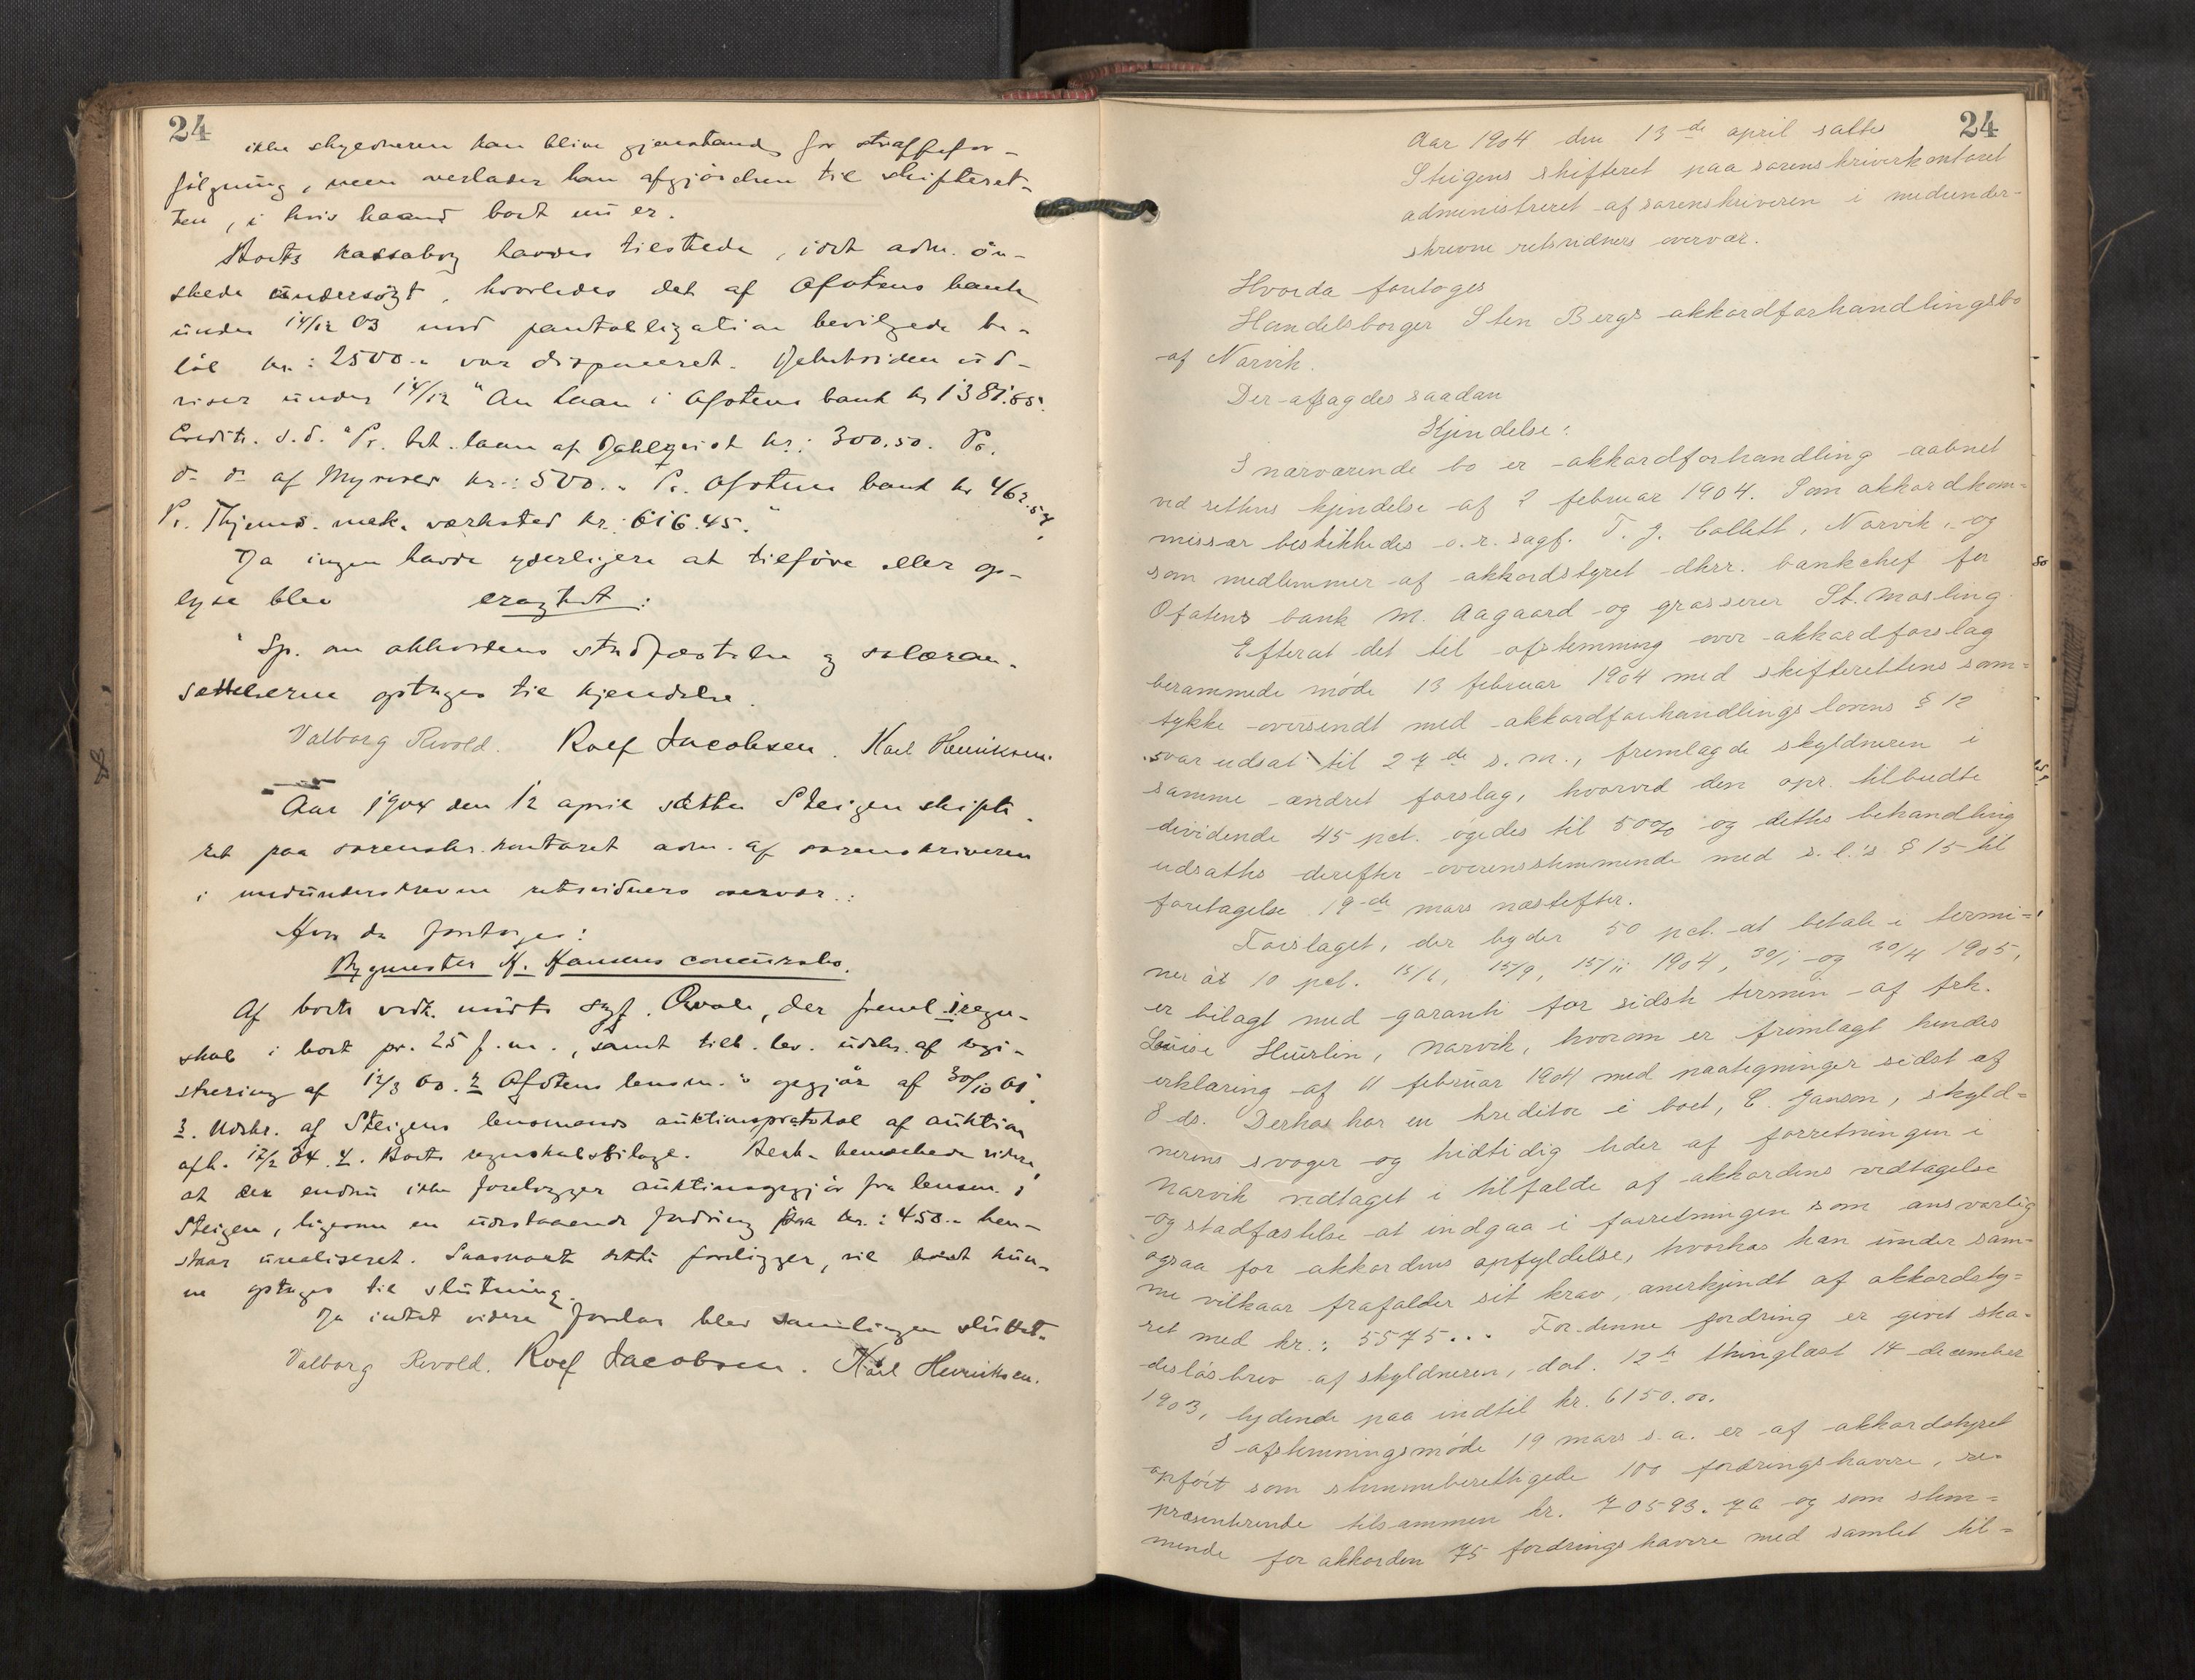 24
ikke skyldneren kan blive gjenstand for straffefor-
følgning, men overlader han afgjørelsen til skifteret-
ten, i hvis haand boet nu er.
Boets kassabog havdes tilstede, idet adm. øn-
skede undersøgt, hvorledes det af Ofotens bank
under 14/12 03 mod pantobligation bevilgede be-
løb kr.: 2500.- var disponeret. Debetsiden ud-
viser under 14/12 "An Laan i Ofotens bank kr 1381.85.
Credit. s.d. "Pr. bet. laan af Dahlqvist kr.: 300.50. Pr.
do do af Myrvold kr.: 500.- Pr. Ofotens bank kr 462.54,
Pr. Thjems. mek. værksted kr.: 616.45."
Da ingen havde yderligere at tilføre eller op-
lyse blev eragtet:
Sp. om akkordens stadfæstelse og salæran-
sættelserne optages til kjendelse.
Valborg Revold. Rolf Jacobsen. Karl Henriksen.
Aar 1904 den 12 april sattes Steigen skifte-
ret paa sorenskr.kontoret adm. af sorenskriveren
i medunderskrevne retsvidners overvær.:
Hvor da foretoges:
Bygmester H. Hansens concursbo.
Af boets vedk. mødte sagf. Qvale, der freml. 1 regn-
skab i boet pr. 25 f.m., samt tillb. lev. udskr. af regi-
strering af 12/3 00. 2 Ofotens lensm.'s opgjør af 30/10 00.
3. Udskr. af Steigens lensmands auktionsprotokol af auktion
afh. 12/2 04. 4. Boets regnskabsbilage. Bestb. bemærkede videre,
at der endnu ikke foreligger auktionsopgjør fra lensm. i
Steigen, ligesom en udestaaende fordring paa kr.: 450.- hen-
staar urealiseret. Saasnart dette foreligger, vil boet kun-
ne optages til slutning.
Da intet videre forelaa blev samlingen sluttet.
Valborg Revold. Rolf Jacobsen. Karl Henriksen.
24
Aar 1904 den 13de april sattes
Steigens skifteret paa sorenskriverkontoret
administreret af sorenskriveren i medunder-
skrevne retsvidners overvær.
Hvorda foretoges
Handelsborger Sten Bergs akkordforhandlingsbo
af Narvik.
Der afsagdes saadan
Kjendelse:
I nærværende bo er akkordforhandling aabnet
ved rettens kjendelse af 2 februar 1904. Som akkordkom-
missær beskikkedes o.r.sagf. T. J. Collett, Narvik, og
som medlemmer af akkordstyret dhrr. bankchef for
Ofotens bank M. Aagaard og grosserer St. Mosling.
Efterat det til afstemning over akkordforslag
berammede møde 13 februar 1904 med skifterettens sam-
tykke overensst. med akkordforhandlingslovens § 12
var udsat til 27de s.m., fremlagde skyldneren i
samme ændret forslag, hvorved den opr. tilbudte
dividende 45 pct. øgedes til 50% og dettes behandling
udsattes derefter overensstemmende med s.l.'s § 15 til
foretagelse 19de mars næstefter.
Forslaget, der byder 50 pct. at betale i termi-
ner à 10 pct. 15/6, 15/9, 15/11 1904, 30/1 og 30/4 1905,
er bilagt med garanti for sidste termin af frk.
Louise Hürlin, Narvik, hvorom er fremlagt hendes
erklæring af 11 februar 1904 med paategninger sidst af
8 ds. Derhos har en kreditor i boet, C. Janson, skyld-
nerens svoger og hidtidig leder af forretningen i
Narvik vedtaget i tilfælde af akkordens vedtagelse
og stadfæstelse at indgaa i forretningen som ansvarlig
ogsaa for akkordens opfyldelse, hvorhos han under sam-
me vilkaar frafalder sit krav, anerkjendt af akkordsty-
ret med kr.: 5575... For denne fordring er givet ska-
desløsbrev af skyldneren, dat. 12te thinglæst 14 december
1903, lydende paa indtil kr. 6150.00.
I afstemningsmøde 19 mars s.a. er af akkordstyret
opført som stemmeberettigede 100 fordringshavere, re-
præsenterende tilsammen kr. 70593.72 og som stem-
mende for akkorden 75 fordringshavere med samlet til-